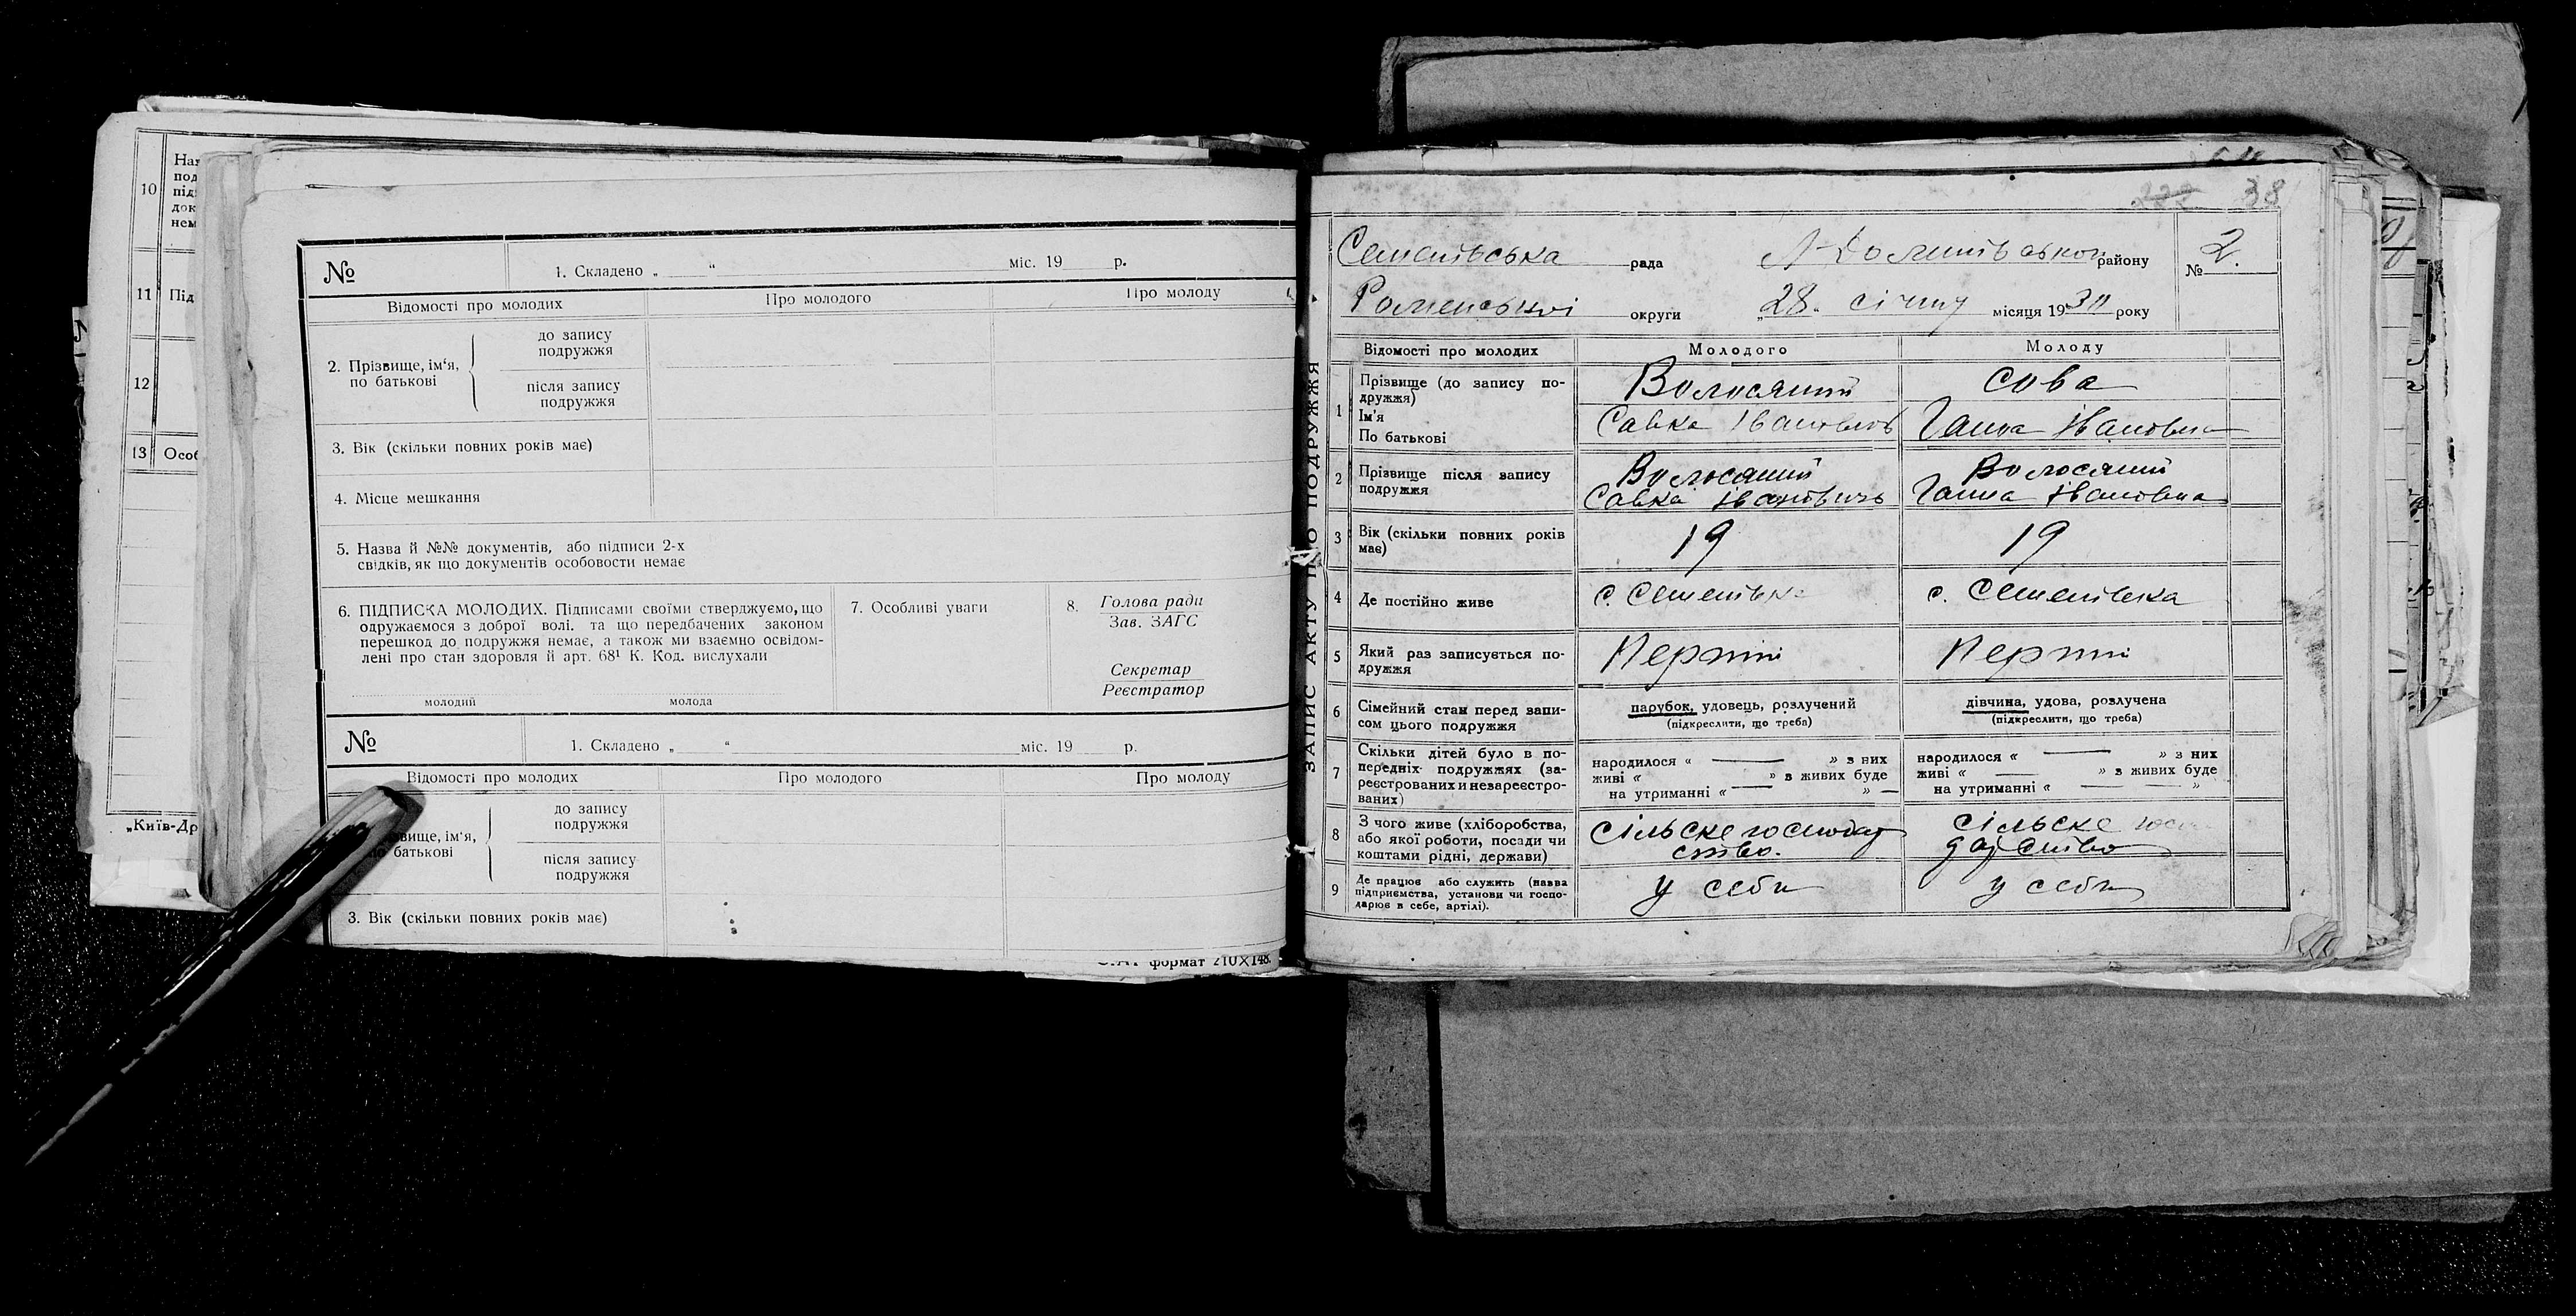 10
На
под
під
док
нем
11 Під
12
13 Особ
„Київ-Др
№
1. Складено „ “ міс. 19 р.
Відомості про молодих
Про молодого
Про молоду
2. Прізвище, ім‘я, по батькові
до запису подружжя
після запису подружжя
3. Вік (скільки повних років має)
4. Місце мешкання
5. Назва й №№ документів, або підписи 2-х
свідків, як що документів особовости немає
6. ПІДПИСКА МОЛОДИХ. Підписами своїми стверджуємо, що
одружаємося з доброї волі. та що передбачених законом
перешкод до подружжя немає, а також ми взаємно освідом-
лені про стан здоровля й арт. 68¹ К. Код. вислухали
молодий молода
7. Особливі уваги
8. Голова ради
Зав. ЗАГС
Секретар
Реєстратор
№
1. Складено „ “ міс. 19 р.
Відомості про молодих
Про молодого
Про молоду
вище, ім‘я,
по батькові
до запису подружжя
після запису подружжя
3. Вік (скільки повних років має)
формат 210×148.
ЗАПИС АКТУ ПРО ПОДРУЖЖЯ
222 38
Семенівська рада Л-Долинівського району
№ 2.
Роменської округи „28“ січня місяця 1930 року
Відомості про молодих
Молодого
Молоду
1 Прізвище (до запису по-
дружжя)
Ім'я
По батькові
Волосяний
Савка Івановичь
Сова
Ганна Івановна
2 Прізвище після запису
подружжя
Волосяний
Савка Івановичь
Волосяний
Ганна Івановна
3 Вік (скільки повних років
має)
19
19
4 Де постійно живе
с. Семенівка
с. Семенівка
5 Який раз записується по-
дружжя
Перший
Перший
6 Сімейний стан перед запи-
сом цього подружжя
парубок, удовець, розлучений
(підкреслити, що треба)
дівчина, удова, розлучена
(підкреслити, що треба)
7 Скільки дітей було в по-
передніх подружжях (за-
реєстрованих и незареєстро-
ваних)
народилося « — » з них
живі « » з живих буде
на утриманні « — » —
народилося « — » з них
живі « — » з живих буде
на утриманні « — — »
8 З чого живе (хліборобства,
або якої роботи, посади чи
коштами рідні, держави)
сільске господар
ство.
сільске госпо
дарство
9 Де працює або служить (назва
підприємства, установи чи госпо-
дарює в себе, артілі).
у себи
у себи